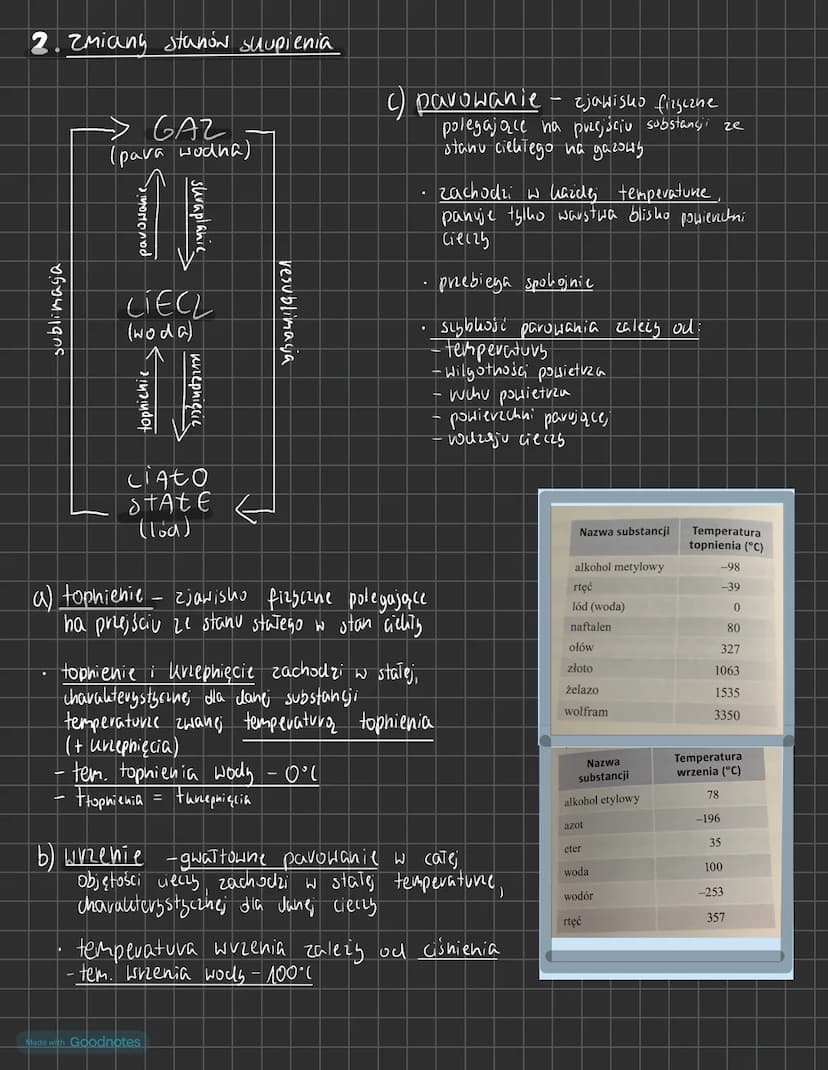 2. Zmiany stanów skupienia
GAZ
(para wodna)
parowanie
skraplanie
sublimacja
resublimacja
CIECZ
(woda)
topnienie
krzepnięcie
CIAŁO
STAŁE
(lód)
a) topnienie – zjawisko fizyczne polegające
na przejściu ze stanu stałego w stan ciekły
· topnienie i krzepnięcie zachodzi w stałej,
charakterystycznej dla danej substancji
temperaturze zwanej temperaturą topnienia
(+ krzepnięcia)
- tem. topnienia wody – 0°C
- Ttopnienia = tkrzepnięcia
b) wrzenie – gwałtowne parowanie w całej
objętości cieczy, zachodzi w stałej temperaturze,
charakterystycznej dla danej cieczy
· temperatura wrzenia zależy od ciśnienia
- tem. wrzenia wody – 100°C
c) parowanie – zjawisko fizyczne
polegające na przejściu substancji ze
stanu ciekłego na gazowy
· zachodzi w każdej temperaturze,
paruje tylko warstwa blisko powierzchni
cieczy
· przebiega spokojnie
· szybkość parowania zależy od:
- temperatury
- wilgotności powietrza
- ruchu powietrza
- powierzchni parującej
- rodzaju cieczy
Nazwa substancji Temperatura
topnienia (°C)
alkohol metylowy –98
rtęć –39
lód (woda) 0
naftalen 80
ołów 327
złoto 1063
żelazo 1535
wolfram 3350
Nazwa
substancji
Temperatura
wrzenia (°C)
alkohol etylowy 78
azot –196
eter 35
woda 100
wodór –253
rtęć 357
Made with Goodnotes